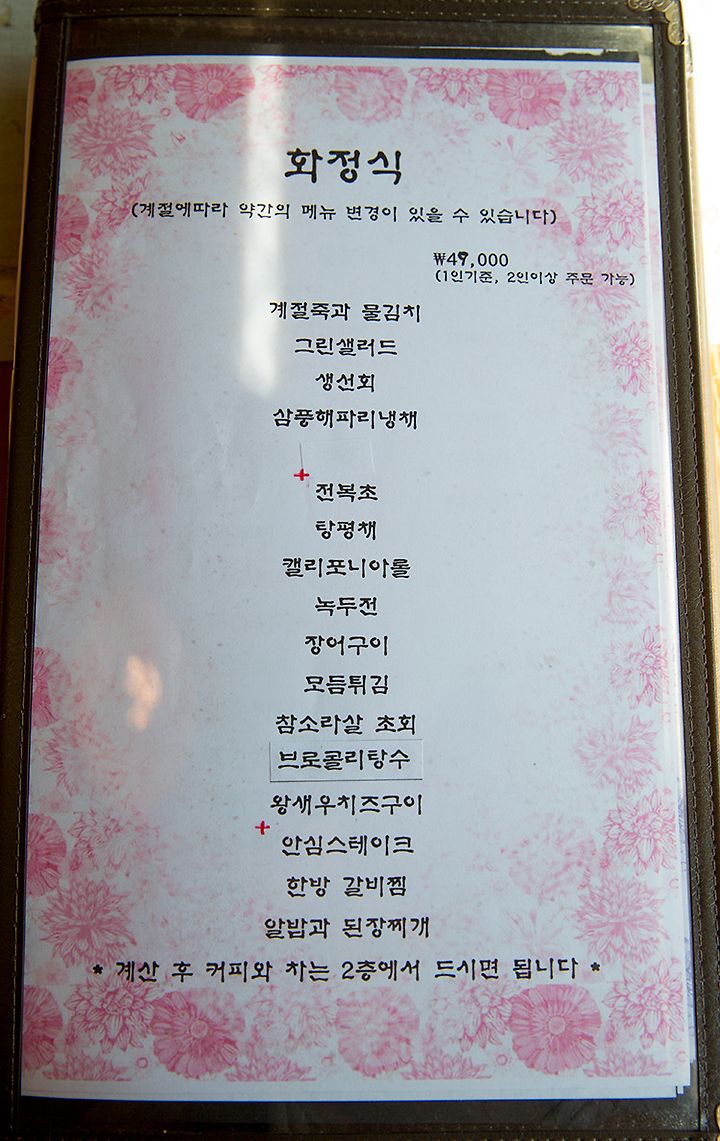 화정식
(계절에따라 약간의 메뉴 변경이 있을 수 있습니다)
₩49,000
(1인기준, 2인이상 주문 가능)
계절죽과 물김치
그린샐러드
생선회
삼풍해파리냉채
전복초
탕평채
캘리포니아롤
녹두전
장어구이
모듬튀김
참소라살 초회
브로콜리탕수
왕새우치즈구이
안심스테이크
한방 갈비찜
알밥과 된장찌개
* 계산 후 커피와 차는 2층에서 드시면 됩니다 *